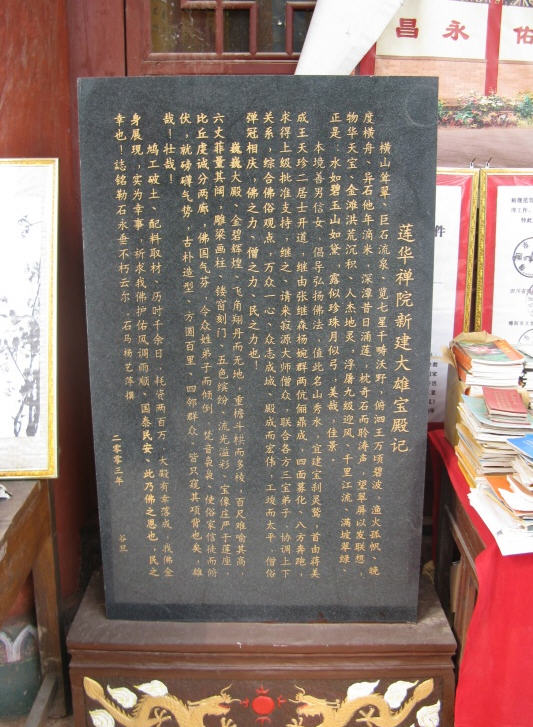 莲华禅院新建大雄宝殿记
横山耸翠、巨石流泉、览七星千畴沃野，俯泗王万顷碧波，渔火孤帆、晚
度横舟、异石他年滴米、深潭昔日涌莲，枕奇石而聆涛声，望翠屏以发联想，
物华天宝、金滩洪荒沉积、人杰地灵，浮屠九级迎风、千里江流、满坡翠绿、
正是：水如碧玉山如黛、露似珍珠月似弓，美哉，佳景。
本境善男信女，倡导弘扬佛法，值此名山秀水，宜建宝刹灵鹫，首由蒋美
成王天珍二居士开道，继由张继森杨婉群两伉俪鼎成，四面募化、八方奔跑，
求得上级批准支持，继之、请来寂源大师僧众，联合各方三宝弟子、协调上下
关系，综合佛俗观点，万众一心、众志成城、殿成而宏伟、工竣而太平，僧俗
弹冠相庆，佛之力、僧之力、民之力也！
巍巍大殿、金碧辉煌、飞角翔卉而无地，重檐斗栱而多棱，百尺难喻其高，
六丈菲量其阔，雕梁画柱、镂窗刻门、五色缤纷、流光溢彩、宝像庄严于莲座，
比丘虔诚分两廊，佛国气芬，令众姓弟子而倾倒，梵音袅袅、使俗家信徒而俯
伏，就磅礴气势，古朴造型，方圆百里、四邻群众、皆只窥其项背也矣，雄
哉！壮哉！
鸠工破土、配料取材、历时千余日，耗资两百万，大殿有幸落成，我佛金
身展现，实为幸事，祈求我佛护佑风调雨顺、国泰民安、此乃佛之恩也，民之
幸也！誌铭勒石永垂不朽云尔。石马杨艺萍撰
二零零三年 谷旦
昌永佑
件